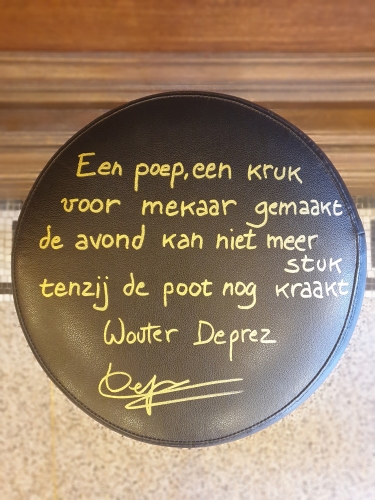 Een poep, een kruk
voor mekaar gemaakt
de avond kan niet meer
stuk
tenzij de poot nog kraakt
Wouter Deprez